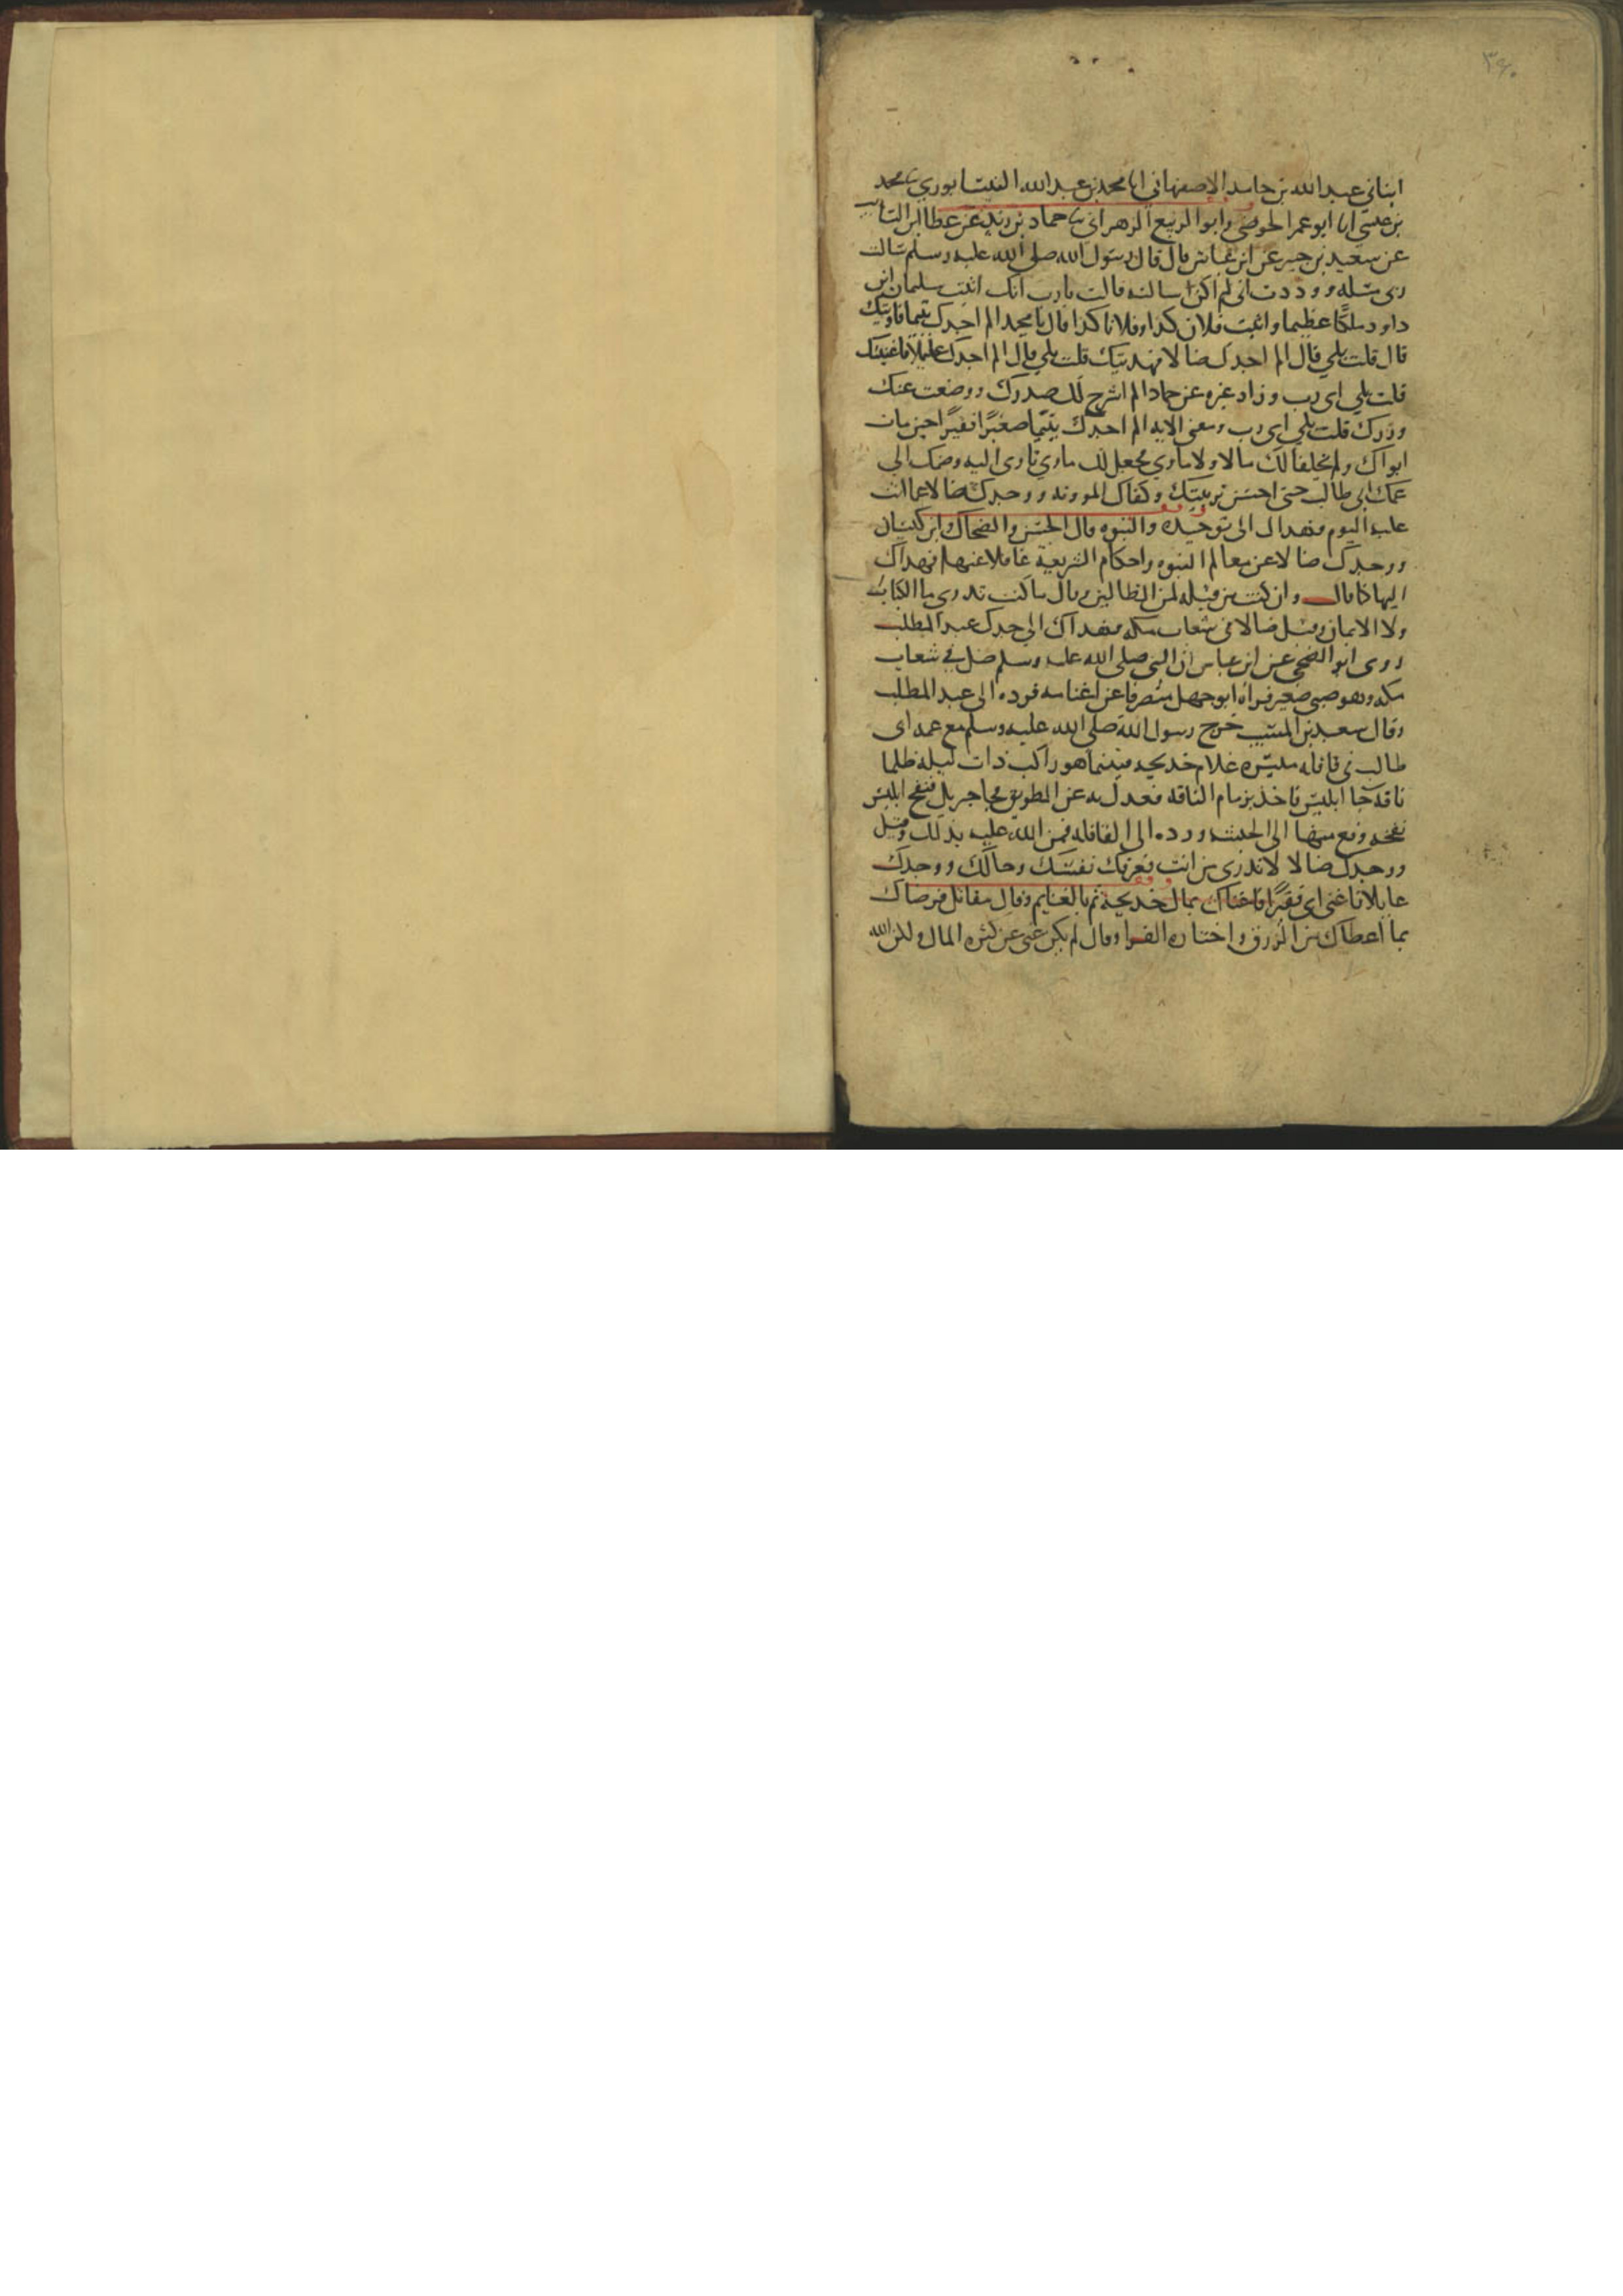 ٣٤٠
انبانى عبد الله بن حامد الاصفهاني انا محمد بن عبد الله النيسابوري نا محمد
بن عيسى انا ابو عمر الحوضى وابو الربيع الزهرانى نا حماد بن زيد عن عطا بن السائب
عن سعيد بن جبير عن ابن عباس قال قال رسول الله صلى الله عليه وسلم سالت
ربى مسله ووددت انى لم اكن سالته قالت يا رب انك اتيت سليمان ابن
داود ملكا عظيما واتيت فلان كذا وفلانا كذا قال يا محمد الم اجدك يتيما فاويتك
قال قلت بلي قال الم اجدك ضالا فهديتك قلت بلي قال الم اجدك عايلا فاغنيتك
قلت بلي اى رب وزاد غيره عن حماد الم اشرح لك صدرك ووضعت عنك
وزرك قلت بلي اى رب ومعنى الايه الم اجدك يتيما صغيرًا فقيرًا حين مات
ابواك ولم يخلفا لك مالا ولا ماوي فجعل لك ماوي تاوى اليه وضمك الي
عمك ابي طالب حتى احسن تربيتك وكفاك الموونه ووجدك ضالا عما انت
عليه اليوم فهداك الى توحيده والنبوه قال الحسن والضحاك وابن كيسان
ووجدك ضالا عن معالم النبوه واحكام الشريعة غافلا عنها فهداك
اليها فقال وان كنت من قبله لمن الغافلين وقال ما كنت تدرى ما الكتاب
ولا الايمان وقيل ضالا في شعاب مكه فهداك الي جدك عبد المطلب
روى ابو الضحى عن ابن عباس ان النبى صلى الله عليه وسلم ضل في شعاب
مكه وهو صبى صغير فراه ابو جهل منصرفا عن اغنامه فرده الى عبد المطلب
وقال سعيد بن المسيب خرج رسول الله صلى الله عليه وسلم مع عمه ابى
طالب فى قافله ميسره غلام خديجه فبينما هو راكب ذات ليله ظلما
ناقه جا ابليس فاخذ بزمام الناقه فعدل به عن الطريق فجا جبريل فنفخ ابليس
نفخه وقع منها الى الحبشه ورده الى القافله فمن الله عليه بذلك وقيل
ووجدك ضالا لا تدرى من انت فعرفك نفسك وحالك ووجدك
عايلا فاغنى اى فقيرًا فاغناك بمال خديجة ثم بالغنايم وقال مقاتل فرضاك
بما اعطاك من الرزق واختاره الفرا وقال لم يكن غنى عن كثره المال ولكن الله